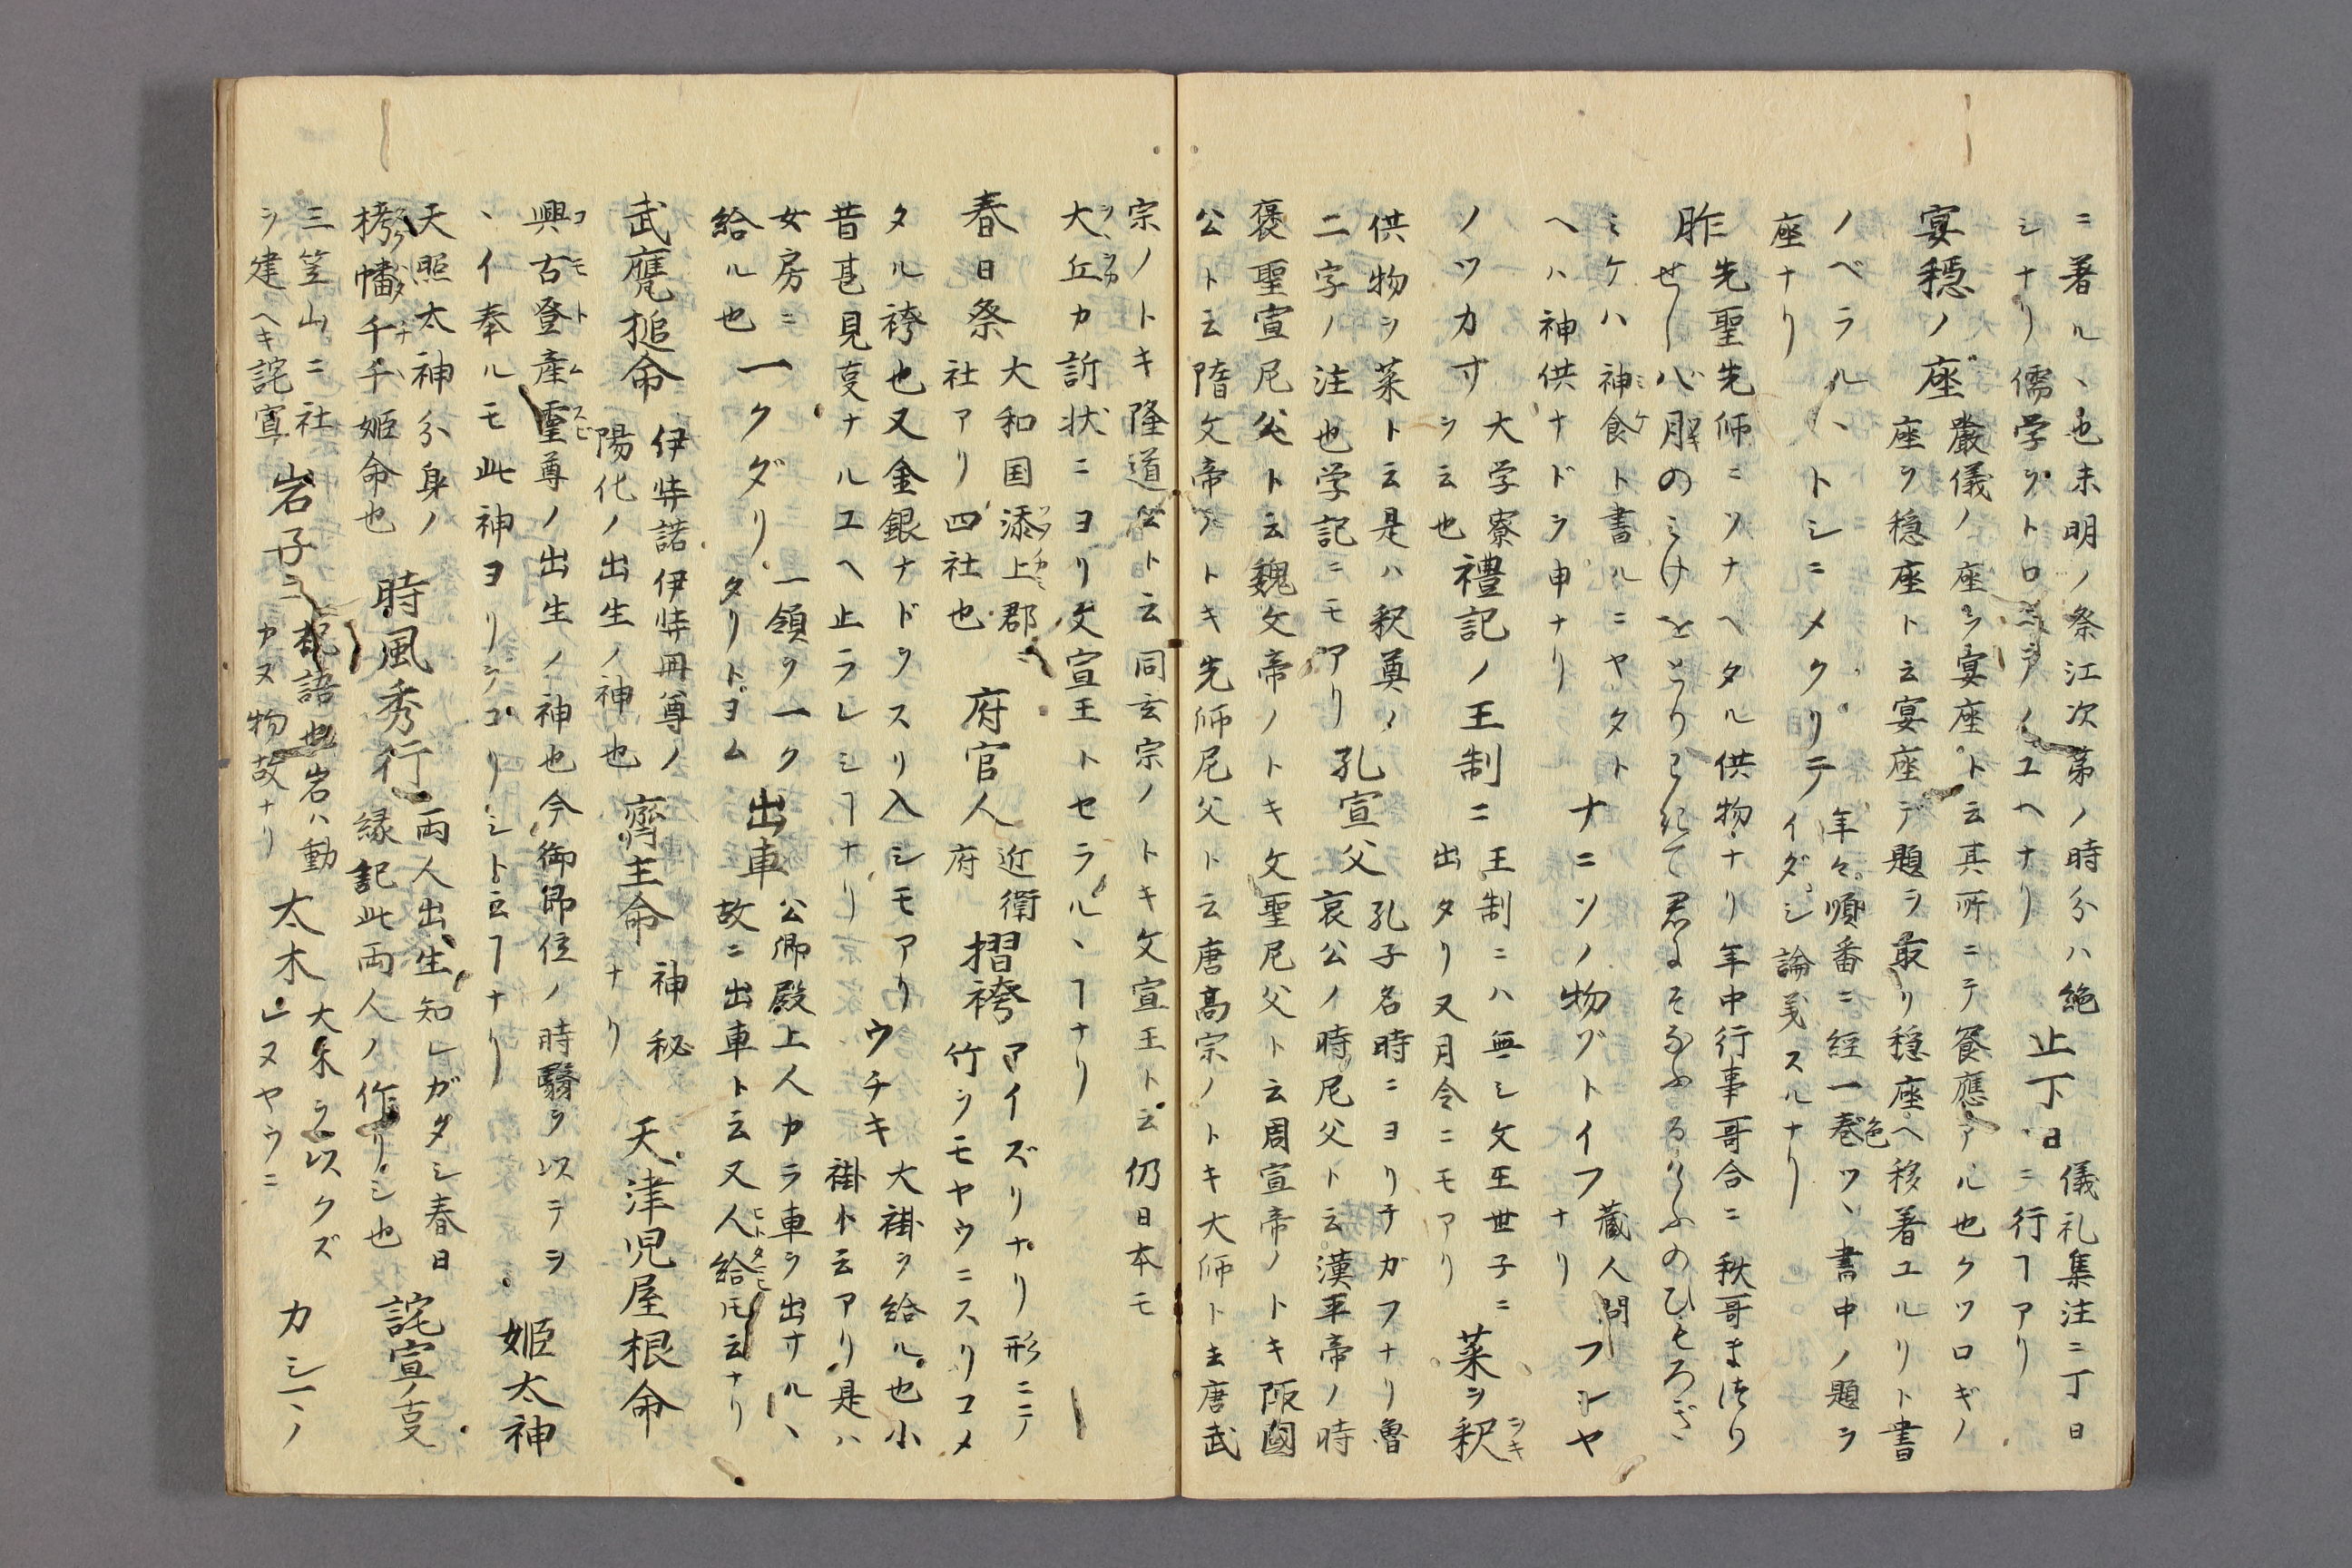 ニ著ル、也未明ノ祭江次第ノ時分ハ絶 止丁日 儀礼集注ニ丁日
シナリ儒学ヲトロミテノユヘナリ ニ行ヿアリ
宴穏ノ座 嚴儀ノ座ヲ宴座ト云其所ニテ饗應アル也クツロギノ
座ヲ穏座ト云宴座デ題ヲ取リ穏座ヘ移著ユルリト書
ノベラルヽ トシニメクリテ 年々順番ニ経一巻ツヽ書中ノ題ヲ
座ナリ イダシ論義スルナリ
昨 先聖先師ニソナヘタル供物ナリ年中行事哥合ニ 秋哥まつり
せしハ のミけをとりわきて君にそなふるけふのひもろぎ
ミケハ神食ト書ルニヤタト ナニソノ物ゾトイフ 蔵人問 フシヤ
ヘハ神供ナドヲ申ナリ ナリ
ノツカサ 大学寮 禮記ノ王制ニ 王制ニハ無シ文王世子ニ 菜ヲ釈
ヲ云也 出タリ又月令ニモアリ
供物ヲ菜ト云是ハ釈奠ノ 孔宣父 孔子名時ニヨリチガフナリ魯
二字ノ注也学記ニモアリ 哀公ノ時尼父ト云漢平帝ノ時
褒聖宣尼公ト云魏文帝ノトキ文聖尼父ト云周宣帝ノトキ 國
公ト云隋文帝ノトキ先師尼父ト云唐高宗ノトキ大師ト云唐武
宗ノトキ隆道公ト云同玄宗ノトキ文宣王ト云仍日本モ
大丘カ訴状ニヨリ文宣王トセラルヽヿナリ
春日祭 大和国添上郡ニ 府官人 近衛 摺袴 アイズリナリ形ニテ
社アリ四社也 府 竹ヲモヤウニスリコメ
タル袴也又金銀ナドヲスリ入シモアリ ウチキ 大褂ヲ給ル也小
昔甚見叓ナルユヘ止ラレシヿナリ 褂ト云アリ是ハ
女房ニ 一クダリ 一領ヲ一ク 出車 公卿殿上人カラ車ヲ出サルヽ
給ル也 タリトヨム 故ニ出車ト云又人給トモ云ナリ
武甕槌命 伊弉諾伊弉冊尊ノ 齊主命 神秘 天津児屋根命
陽化ノ出生ノ神也 ナリ
興古登産霊尊ノ出生ノ神也今御即位ノ時 ヲ以テヲ 姫太神
ヽイ奉ルモ此神ヨリヲコリシト云ヿナリ
天照太神分身ノ 時風秀行 両人出生知レガタシ春日 託宣ノ叓
栲幡千千姫命也 縁記此両人ノ作リシ也
三笠山ニ社 岩子ヱ 祝語也岩ハ動 太木 大木ヲ以クズ カシ一ヽノ
ヲ建ヘキ託宣 カヌ物故ナリ レヌヤウニ